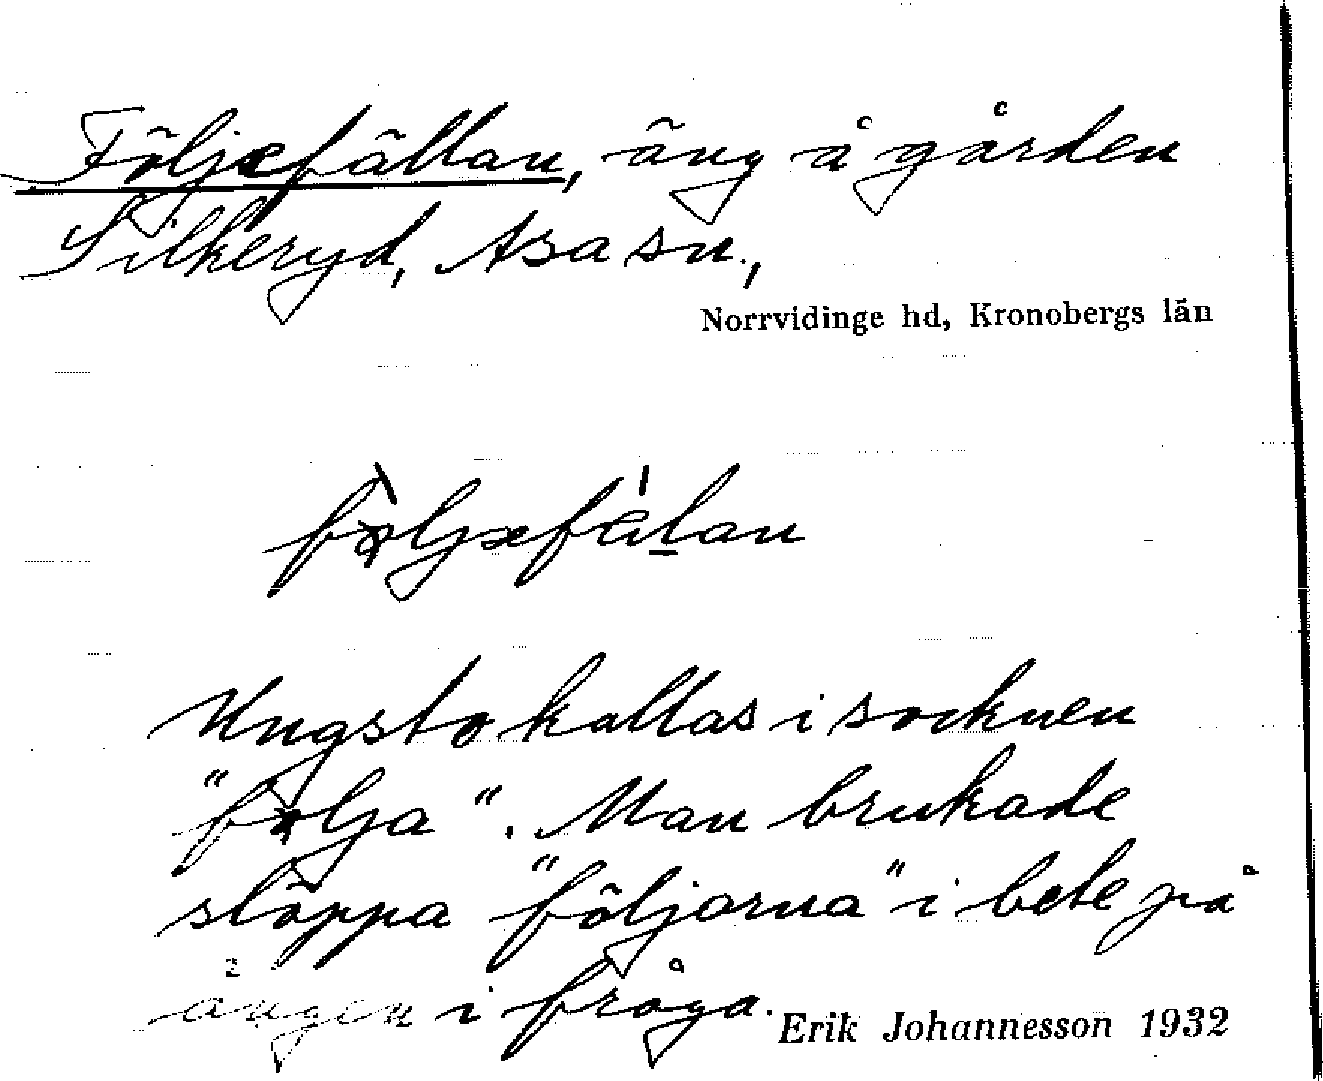 Följefällan, äng å gården
Silkeryd, Asa sn.,
Norrvidinge hd, Kronobergs län
Ungsto kallas i socknen
"følja". Man brukade
släppa "följorna" i bete på
ängen i fråga.
Erik Johannesson 1932